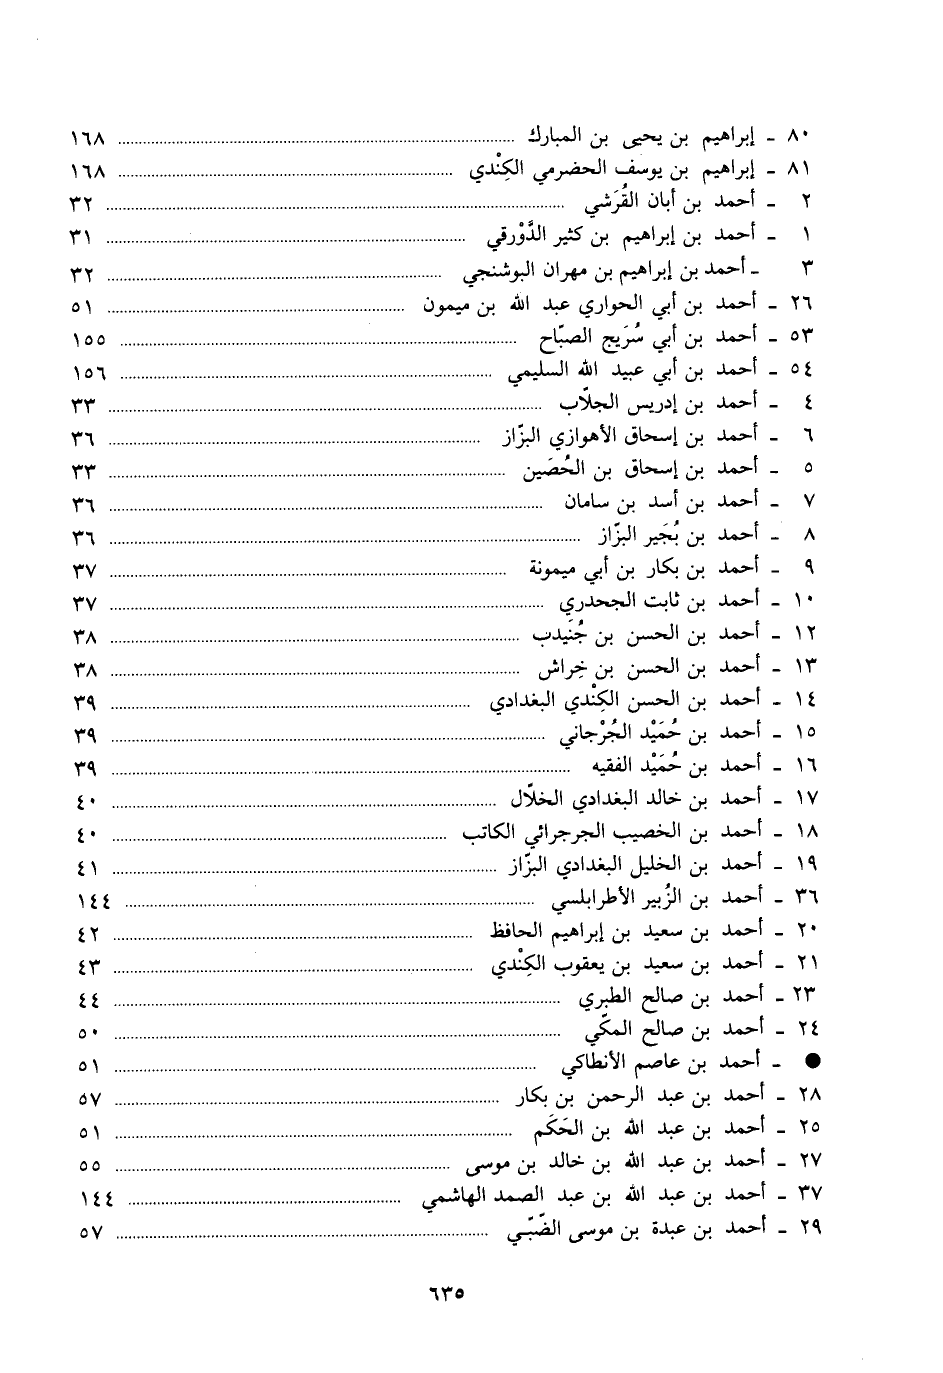 ٨٠ - إبراهيم بن يحيى بن المبارك ........ ١٦٨
٨١ - إبراهيم بن يوسف الحضرمي الكِنْدي ........ ١٦٨
٢ - أحمد بن أبان القُرَشي ........ ٣٢
١ - أحمد بن إبراهيم بن كثير الدَّوْرقي ........ ٣١
٣ - أحمد بن إبراهيم بن مهران البوشنجي ........ ٣٢
٢٦ - أحمد بن أبي الحواري عبد الله بن ميمون ........ ٥١
٥٣ - أحمد بن أبي سُرَيج الصبّاح ........ ١٥٥
٥٤ - أحمد بن أبي عبيد الله السليمي ........ ١٥٦
٤ - أحمد بن إدريس الجلّاب ........ ٣٣
٦ - أحمد بن إسحاق الأهوازي البزّاز ........ ٣٦
٥ - أحمد بن إسحاق بن الحُصَين ........ ٣٣
٧ - أحمد بن أسد بن سامان ........ ٣٦
٨ - أحمد بن بُجَير البزّاز ........ ٣٦
٩ - أحمد بن بكار بن أبي ميمونة ........ ٣٧
١٠ - أحمد بن ثابت الجحدري ........ ٣٧
١٢ - أحمد بن الحسن بن جُنَيدب ........ ٣٨
١٣ - أحمد بن الحسن بن خِراش ........ ٣٨
١٤ - أحمد بن الحسن الكِنْدي البغدادي ........ ٣٩
١٥ - أحمد بن حُمَيْد الجُرْجاني ........ ٣٩
١٦ - أحمد بن حُمَيْد الفقيه ........ ٣٩
١٧ - أحمد بن خالد البغدادي الخلّال ........ ٤٠
١٨ - أحمد بن الخصيب الجرجرائي الكاتب ........ ٤٠
١٩ - أحمد بن الخليل البغدادي البزّاز ........ ٤١
٣٦ - أحمد بن الزُبير الأطرابلسي ........ ١٤٤
٢٠ - أحمد بن سعيد بن إبراهيم الحافظ ........ ٤٢
٢١ - أحمد بن سعيد بن يعقوب الكِنْدي ........ ٤٣
٢٣ - أحمد بن صالح الطبري ........ ٤٤
٢٤ - أحمد بن صالح المكّي ........ ٥٠
● - أحمد بن عاصم الأنطاكي ........ ٥١
٢٨ - أحمد بن عبد الرحمن بن بكار ........ ٥٧
٢٥ - أحمد بن عبد الله بن الحَكَم ........ ٥١
٢٧ - أحمد بن عبد الله بن خالد بن موسى ........ ٥٥
٣٧ - أحمد بن عبد الله بن عبد الصمد الهاشمي ........ ١٤٤
٢٩ - أحمد بن عبدة بن موسى الضّبّي ........ ٥٧
٦٣٥